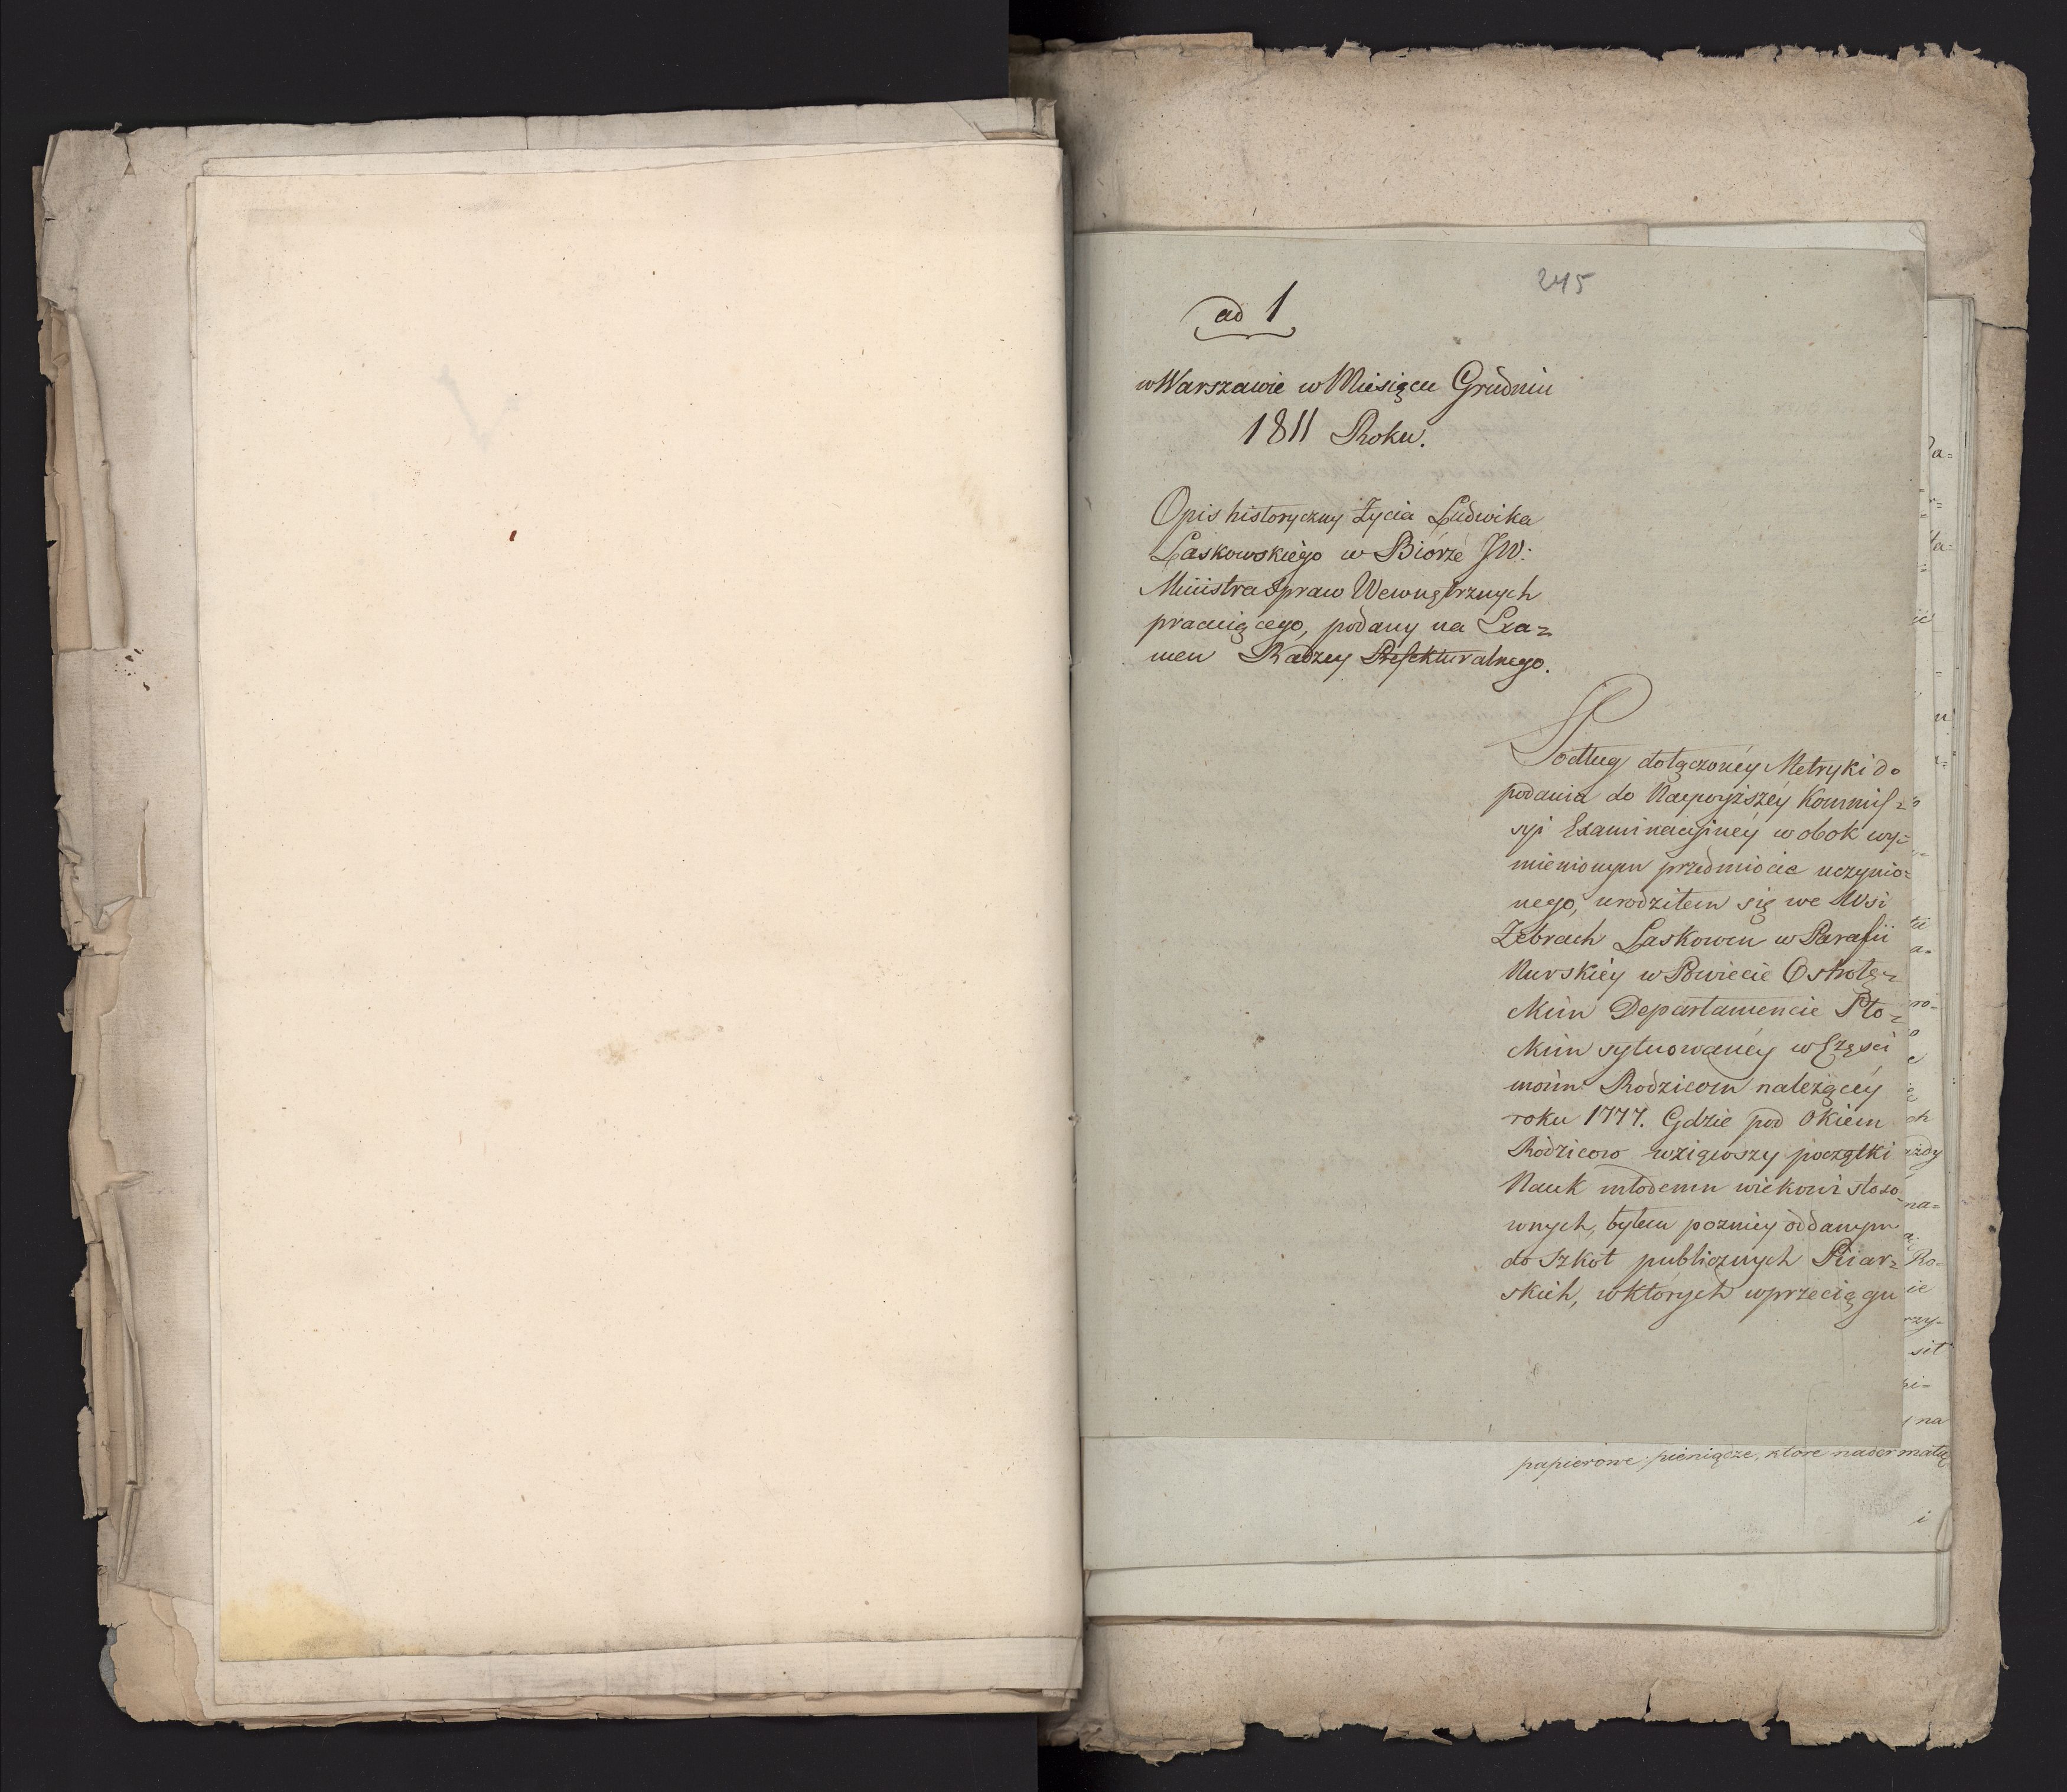 245
ad 1
w Warszawie w Miesiącu Grudniu
1811 Roku.
Opis historyczny Życia Ludwika
Laskowskiego w Biórze JW:
Ministra Spraw Wewnętrznych
pracuiącego, podany na Exa=
men Radzcy Prefekturalnego.
Podług dołączoney Metryki do
podania do Naywyższey Kommis=
syi Examinacyiney w obok wy=
mienionym przedmiocie uczynio=
nego, urodziłem się we Wsi
Żebrach Laskowcu w Parafii
Nurskiey w Powiecie Ostrołę=
ckim Departamencie Pło=
ckim sytuowaney w Części
moim Rodzicom należącey
roku 1777. Gdzie pod okiem
Rodziców wziąwszy początki
Nauk młodemu wiekowi stoso
wnych, byłem pozniey oddanym
do Szkół publicznych Piiar=
skich, w których w przeciągu
papierowe pieniądze, które nader małą
i